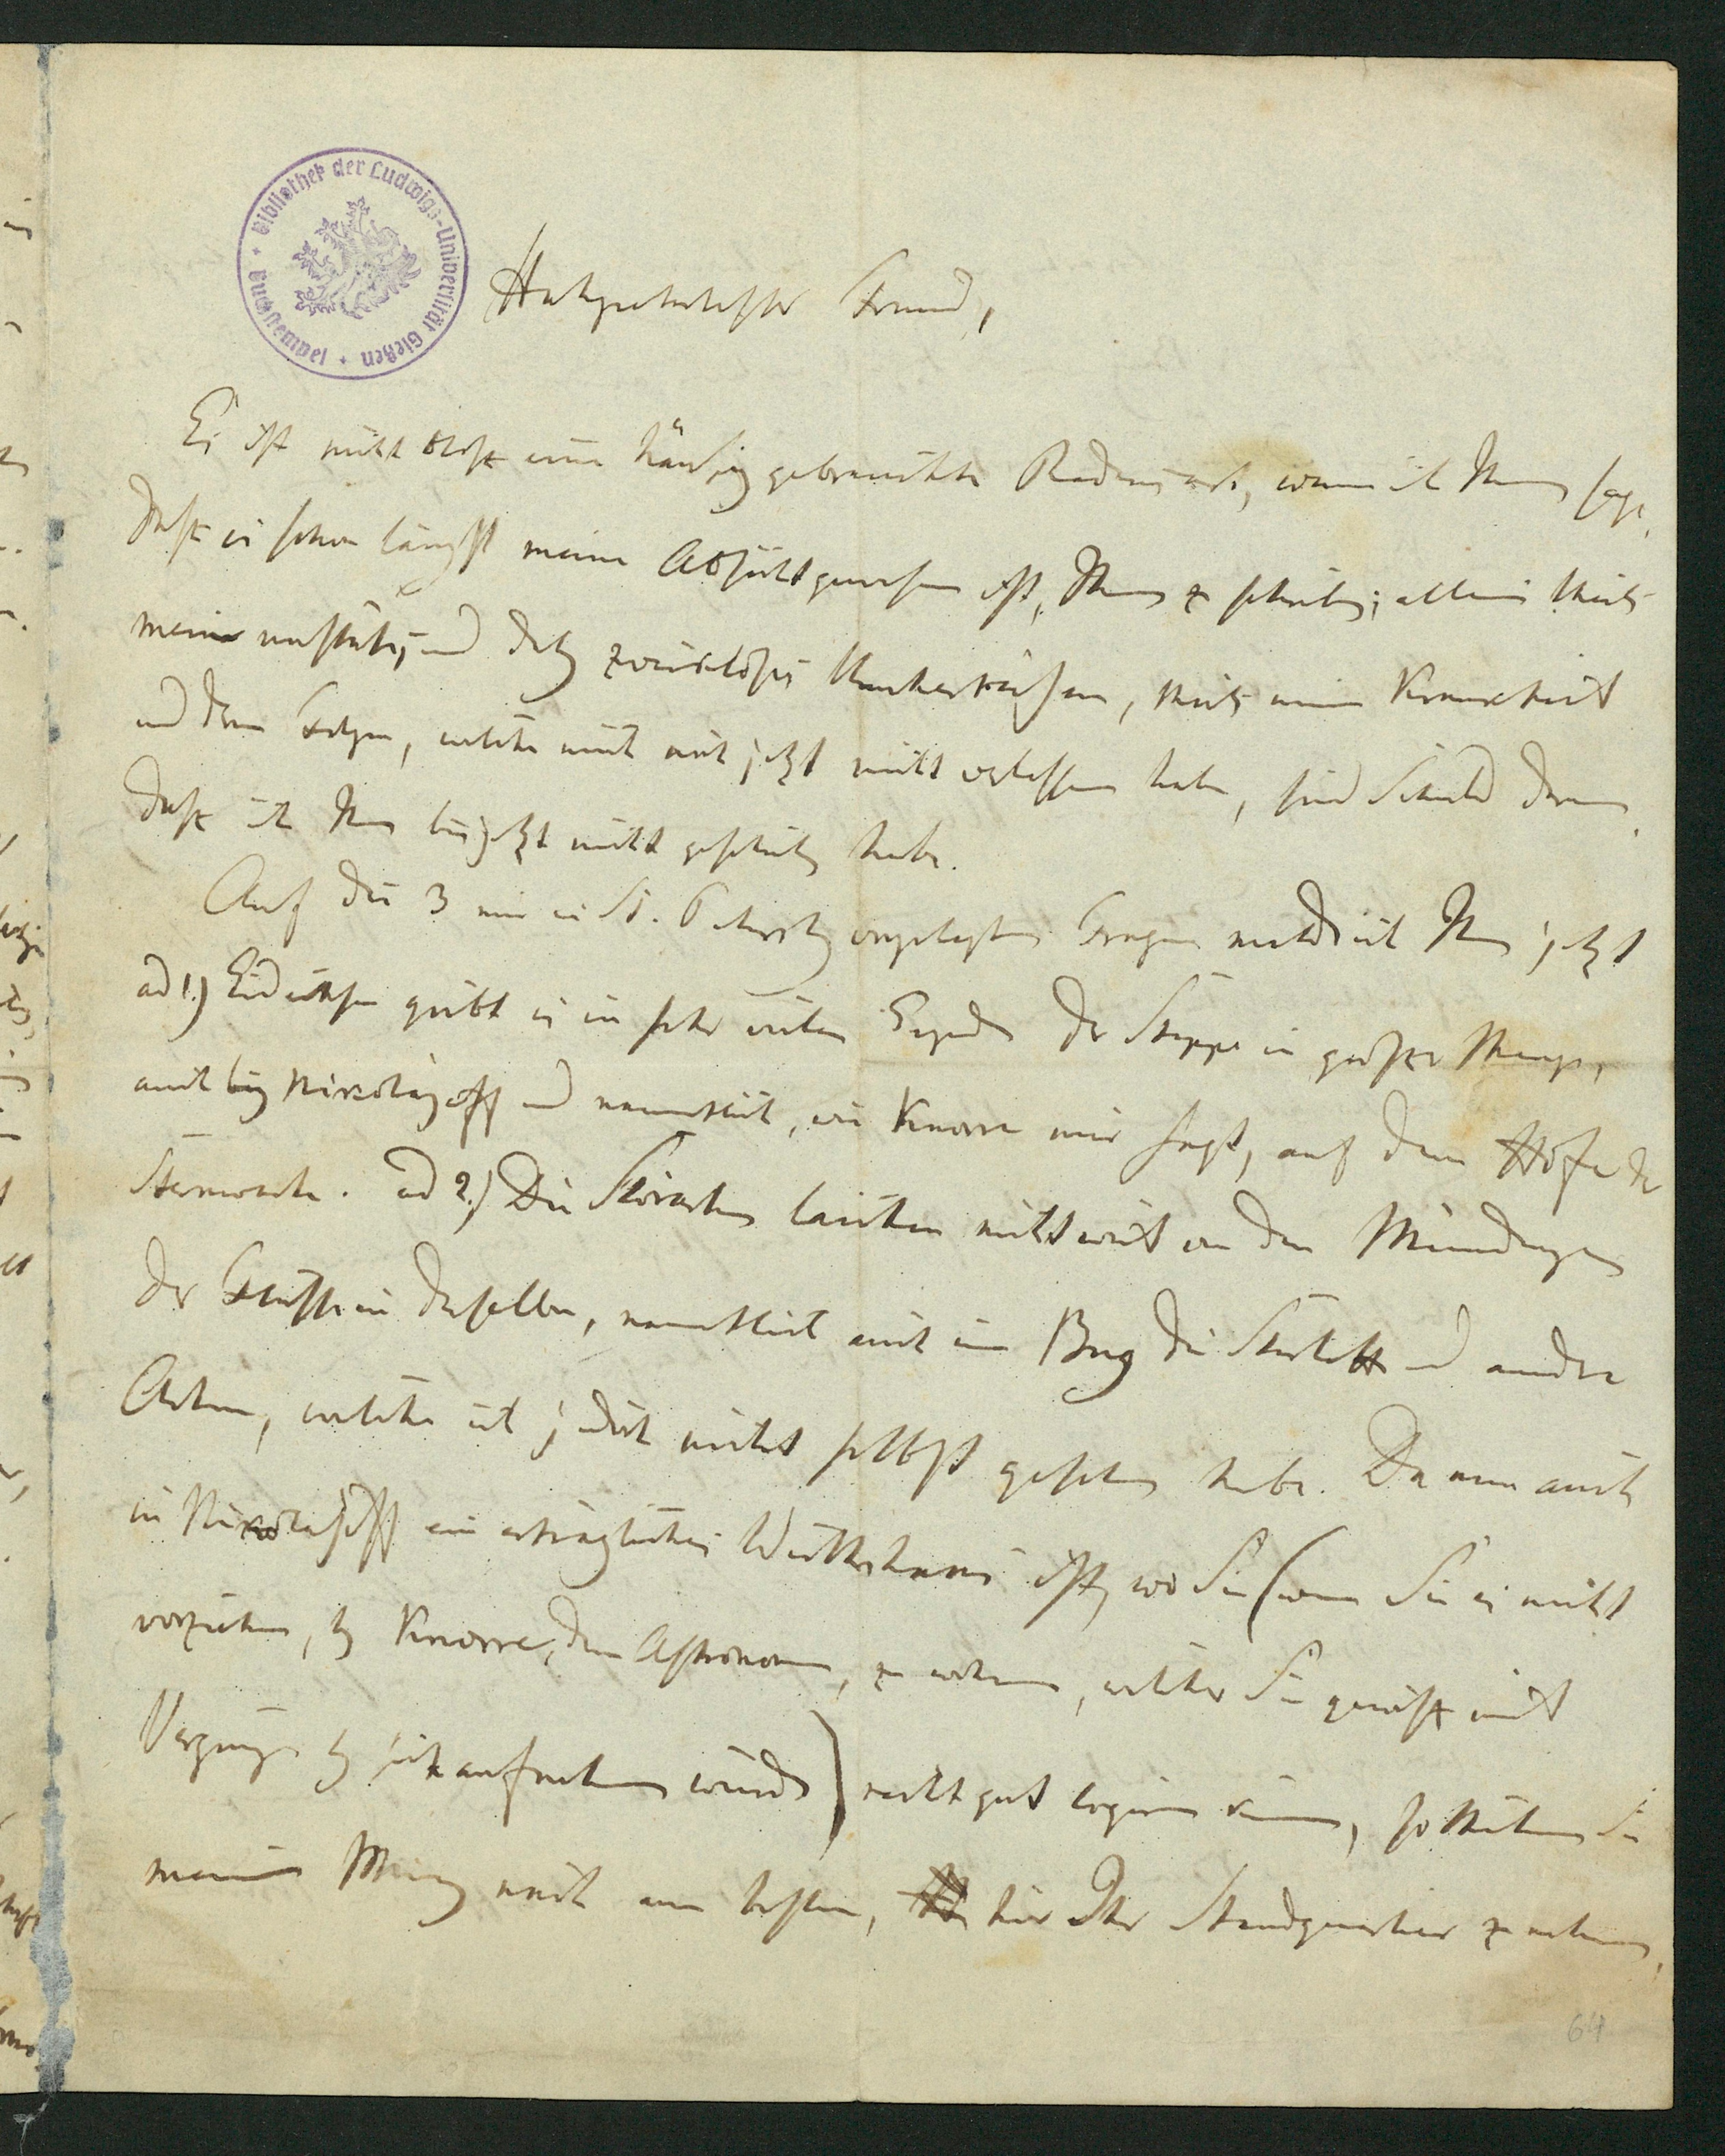 Bibliothek der Ludwigs-Universität Gießen
Buchstempel
Hochgeehrtester Freund,
Es ist nicht bloß eine häufig gebrauchte Redensart, wenn ich Ihnen sage,
daß es schon längst meine Absicht gewesen ist, Ihnen zu schreiben; allein theils
mein unstätes, und doch zweckloses Umherreisen, theils meine Krankheit
und deren Folgen, welche mich noch jetzt nicht verlassen haben, sind Schuld daran,
daß ich Ihnen bis jetzt nicht geschrieben habe.
Auf die 3 mir in St. Petersburg vorgelegten Fragen melde ich Ihnen jetzt
ad 1.) Eidechsen giebt es in sehr vielen Gegenden der Steppe in großer Menge,
auch bey Nikolajeff und namentlich, wie Knorre mir sagt, auf dem Hofe der
Sternwarte. ad 2.) Die Störarten laichen nicht weit von den Mündungen
der Flüsse in denselben, namentlich auch im Bug die Sterlett und andere
Arten, welche ich jedoch nicht selbst gesehen habe. Da nun auch
in Nikolajeff ein erträgliches Wirthshaus ist, wo Sie (wenn Sie es nicht
vorziehen, bey Knorre, dem Astronomen, zu wohnen, welcher Sie gewiß mit
Vergnügen bey sich aufnehmen würde) recht gut logiren können, so thäten Sie
meiner Meinung nach am besten, hier Ihr Standquartier zu nehmen,
64